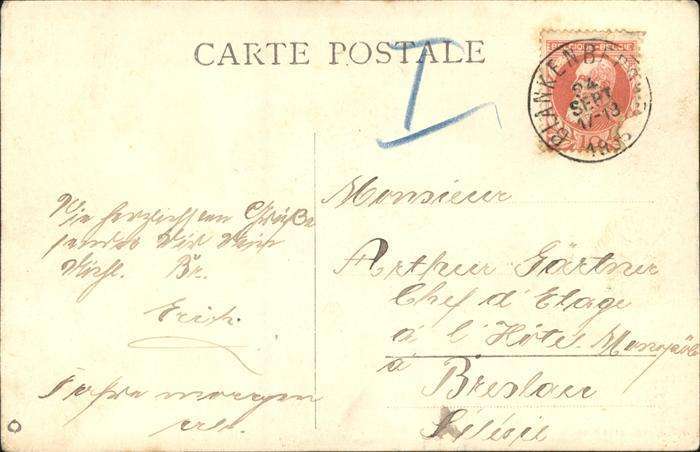 CARTE POSTALE
T
BELGIQUE BELGIË
BLANKENBERGHE
24
SEPT
17-18
10
Die herzlichsten Grüße
sendet Dir Dein
Br.
Erich.
morgen
Monsieur
Arthur Gärtner
Chef d'Etage
à l'Hôtel Monopôl
à
Breslau
Silésie